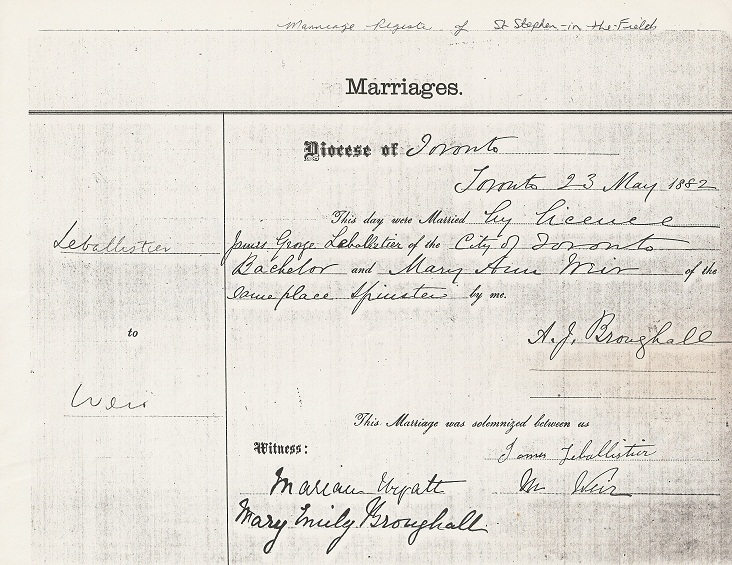 Marriage Register of St Stephen-in-the-Fields
Marriages.
Diocese of Toronto
Toronto 23 May 1882
This day were Married by licence
Leballistier
James Geroge Leballistier of the City of Toronto
Bachelor and Mary Ann Weir of the
same place Spinster by me.
to
A. J. Broughall
Weir
This Marriage was solemnized between us
Witness:
James Leballistier
Marian Wyatt
M Weir
Mary Emily Broughall